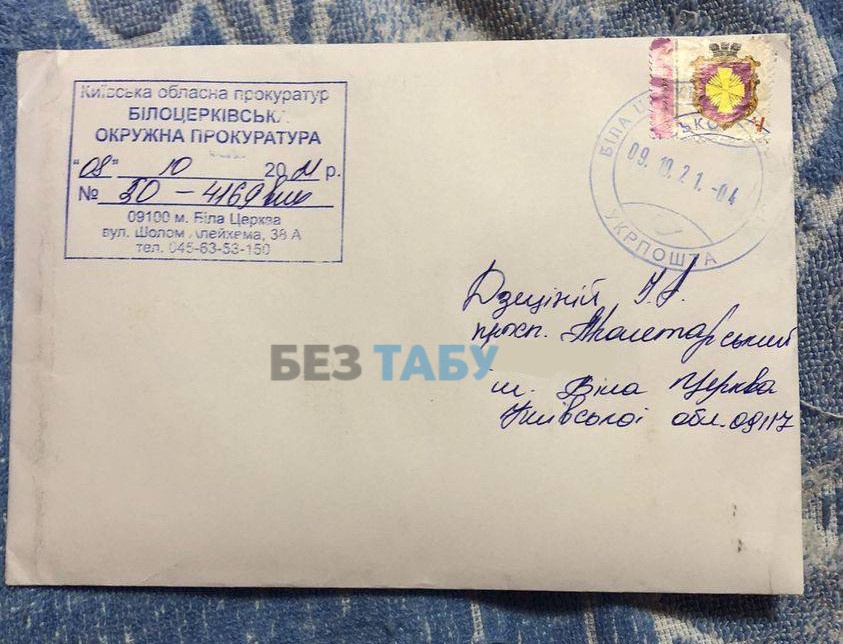 Київська обласна прокуратур
БІЛОЦЕРКІВСЬК
ОКРУЖНА ПРОКУРАТУРА
"08" 10 2021 р.
№ 50-4169вих
09100 м. Біла Церква
вул. Шолом Алейхема, 38 А
тел. 045-63-53-150
БІЛА Ц
09.10.21.-04
УКРПОШТА
Дзециній
просп.
БЕЗ ТАБУ
м. Біла Церква
Київської обл. 09117